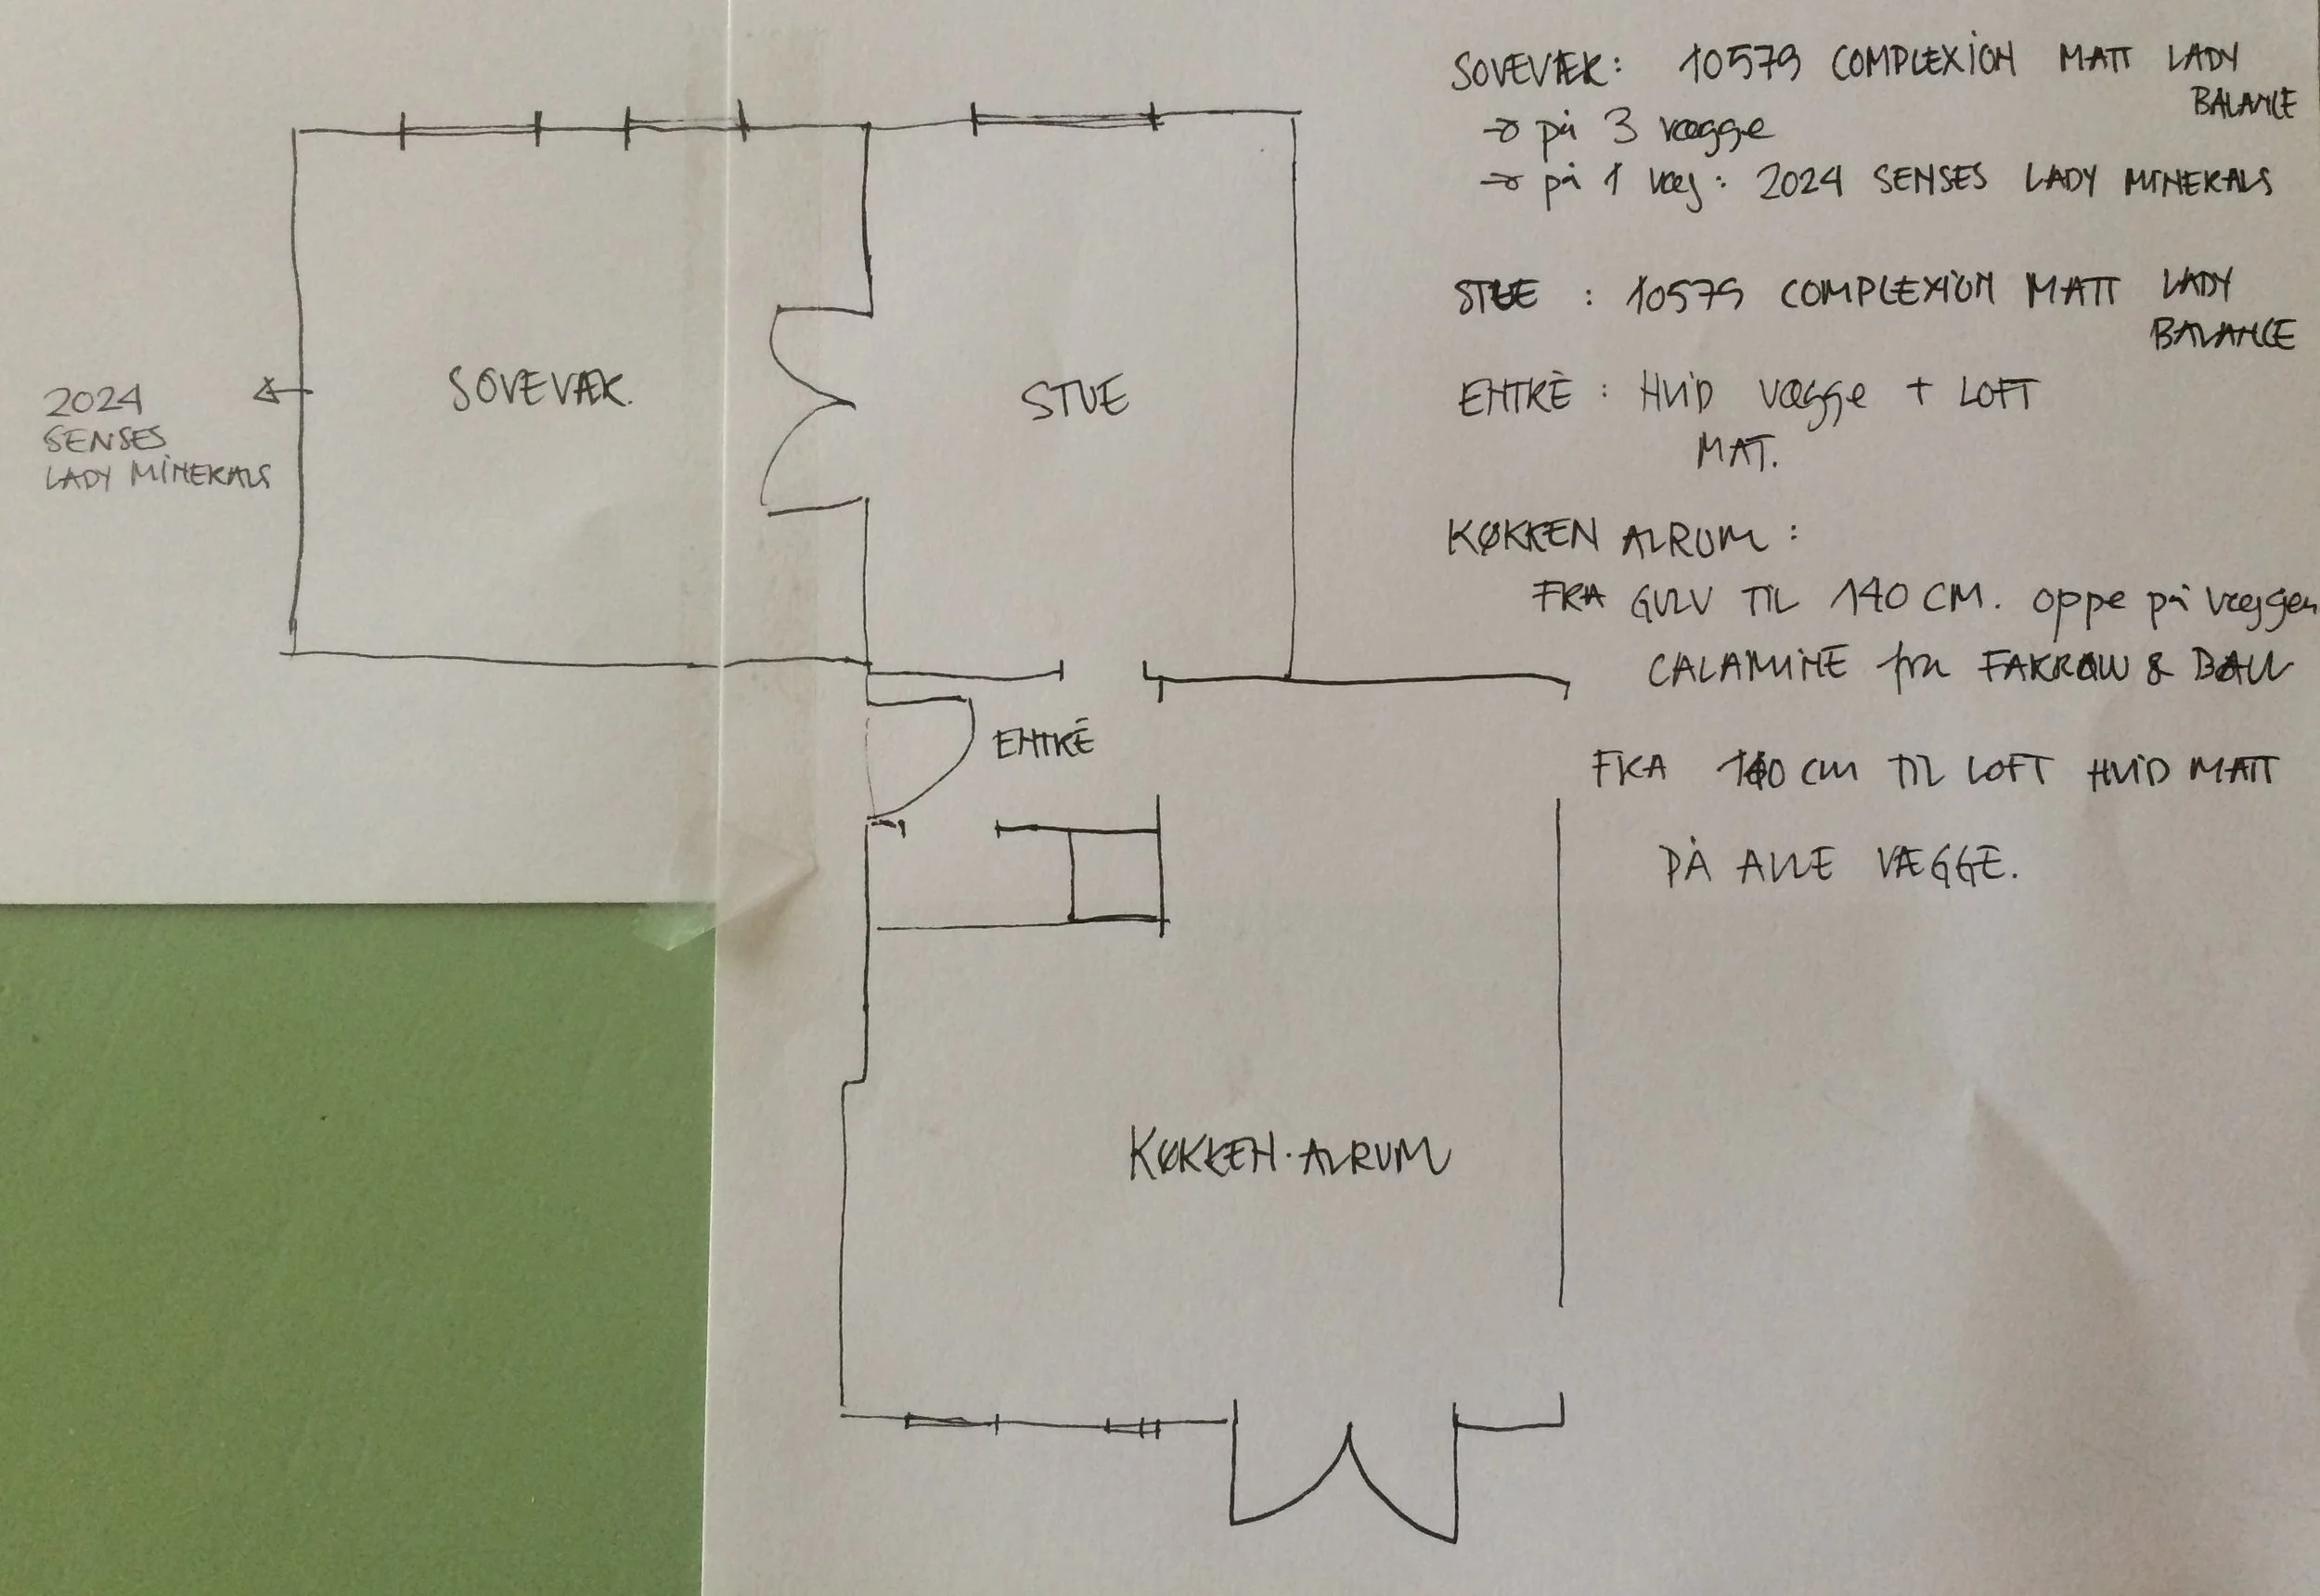 SOVEVÆR: 10579 COMPLEXION MATT LADY
BALANCE
→ på 3 vægge
→ på 1 væg: 2024 SENSES LADY MINERALS
STUE : 10579 COMPLEXION MATT LADY
BALANCE
ENTRÈ : HVID vægge + LOFT
MAT.
KØKKEN ALRUM :
FRA GULV TIL 140 CM. oppe på væggen
CALAMINE fra FARROW & BALL
FRA 140 cm TIL LOFT HVID MATT
PÅ ALLE VÆGGE.
2024
SENSES
LADY MINERALS
SOVEVÆR.
STUE
ENTRÈ
KØKKEN·ALRUM